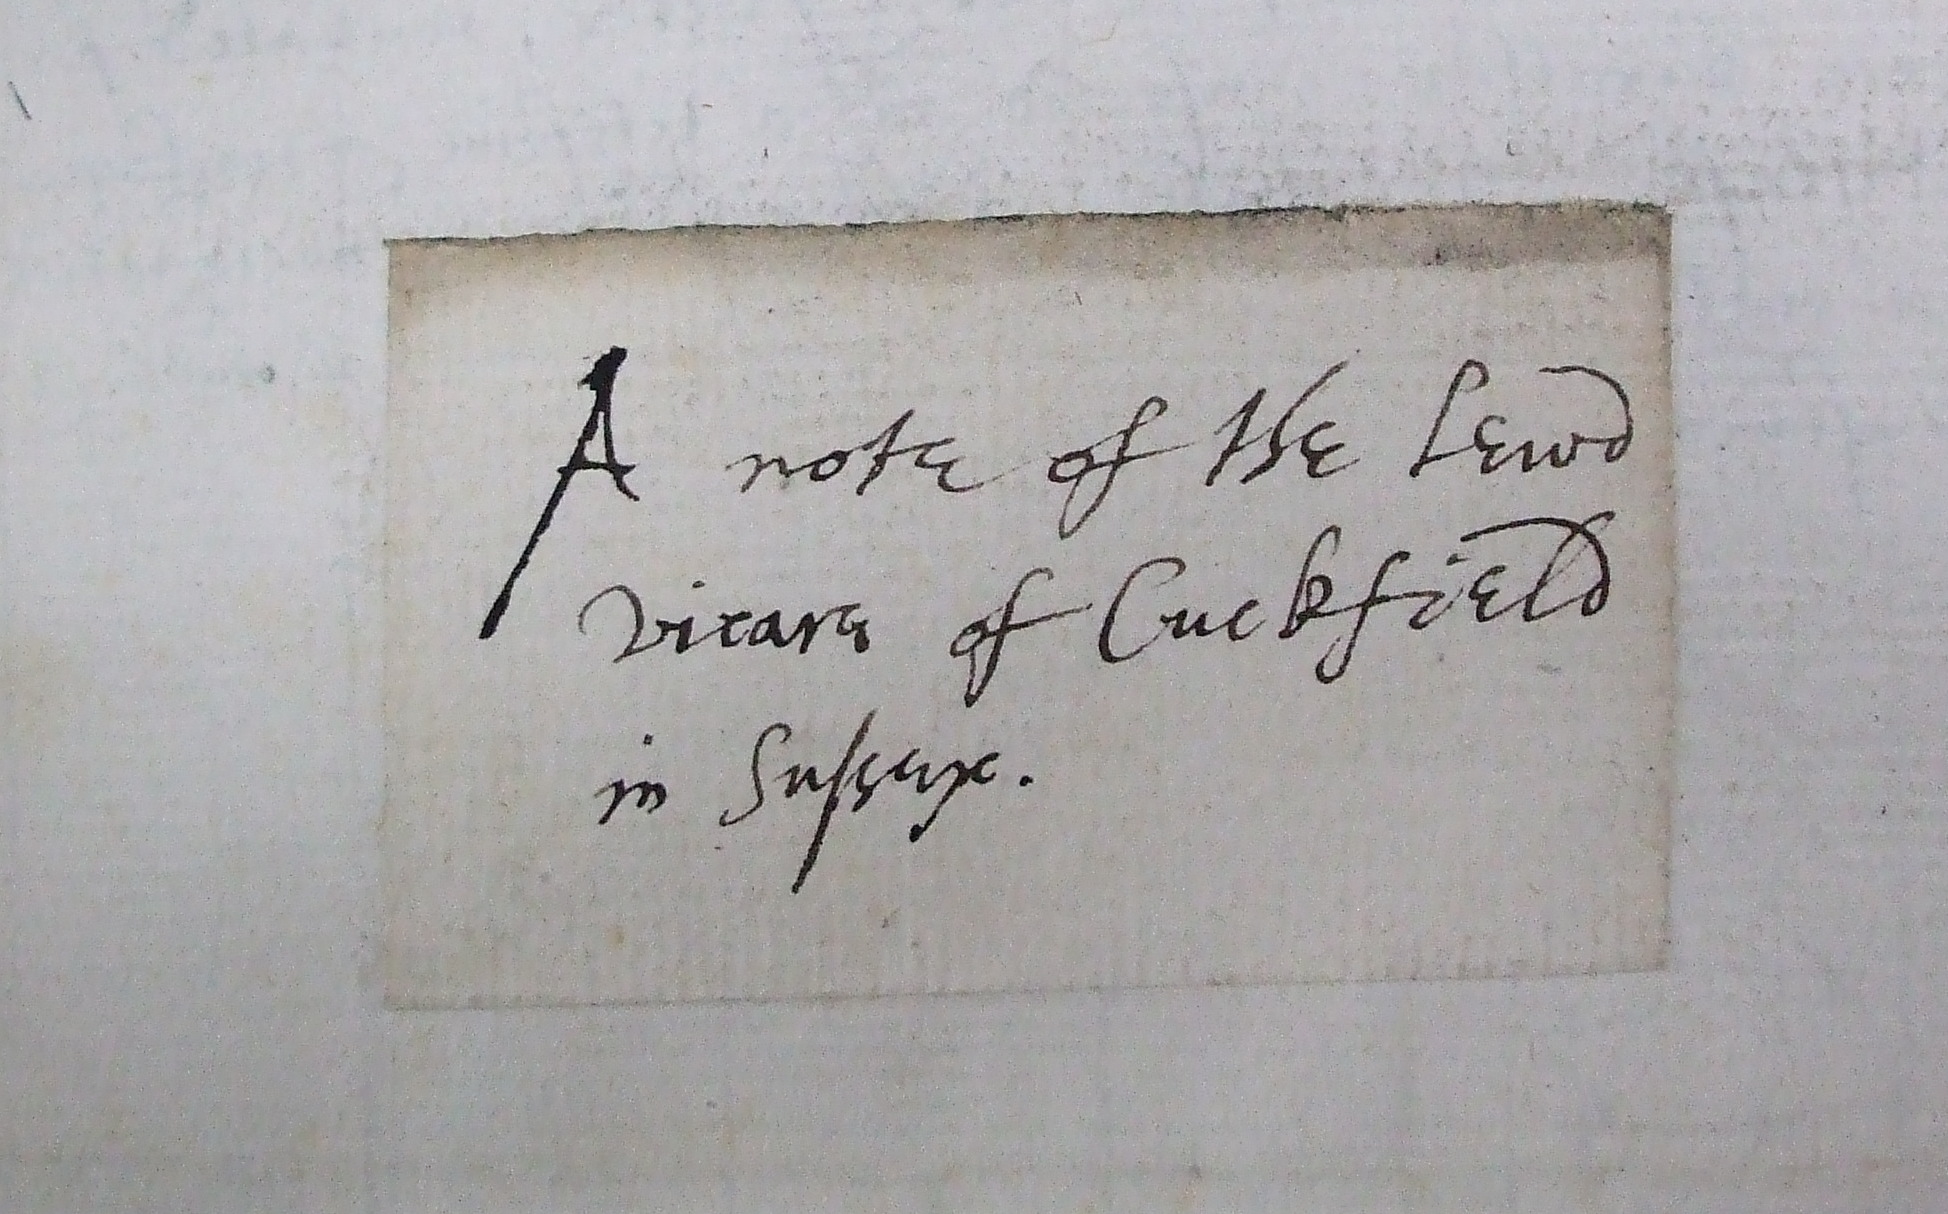 A note of the Lewd
vicare of Cuckfield
in Sussex.